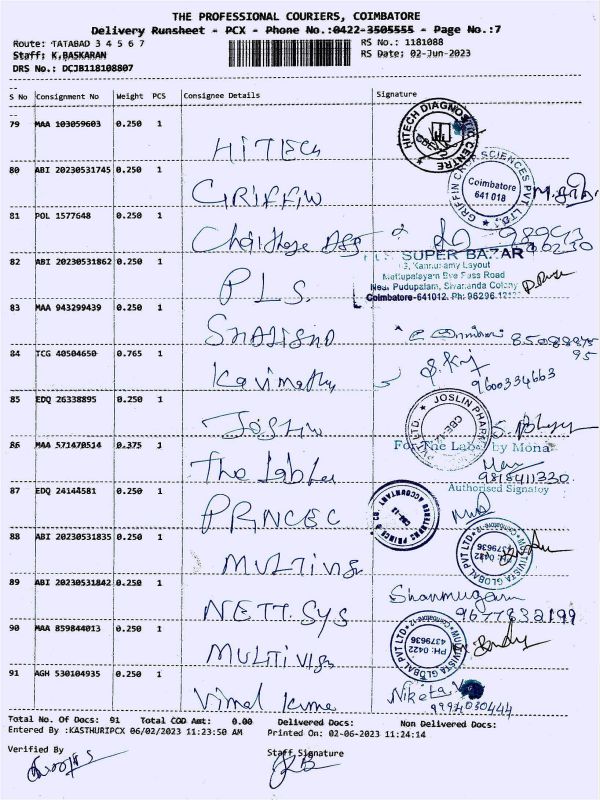 THE PROFESSIONAL COURIERS, COIMBATORE
Delivery Runsheet - PCX - Phone No.:0422-3505555 - Page No.:7
Route: TATABAD 3 4 5 6 7 RS No.: 1181088
Staff: K,BASKARAN RS Date: 02-Jun-2023
DRS No.: DCJB118108807
S No Consignment No Weight PCS Consignee Details Signature
79 MAA 103059603 0.250 1 HITECH HITECH DIAGNOSTIC CENTRE
80 ABI 20230531745 0.250 1 GRIFFIN GRIFFIN CROP SCIENCES PVT. LTD. Coimbatore 641 018
81 POL 1577648 0.250 1
82 ABI 20230531862 0.250 1 PLS. SUPER BAZAR
Kannusamy Layout
Mettupalayam Bye Pass Road
Near Pudupalam, Sivananda Colony
Coimbatore-641012. Ph: 96296
83 MAA 943299439 0.250 1
84 TCG 40504650 0.765 1 9600334663
85 EDQ 26338895 0.250 1 Joslin JOSLIN PHAR PVT LTD. CBE-12
86 MAA 571470514 0.375 1 The Lab For The Lab by Mona
9815411330
Authorised Signatoy
87 EDQ 24144581 0.250 1 PRNCEC PRINCE & CO. CHARTERED ACCOUNTANT
88 ABI 20230531835 0.250 1 MULTIVIS MULTIVISTA GLOBAL PVT LTD PH: 0422 4379636
89 ABI 20230531842 0.250 1 NETT.SYS Shanmugam
9677832199
90 MAA 859844013 0.250 1 MULTIVIS MULTIVISTA GLOBAL PVT LTD Coimbatore-12 PH: 0422 4379636
91 AGH 530104935 0.250 1 Vimal Kuma Niketa V
9994030444
Total No. Of Docs: 91 Total COD Amt: 0.00 Delivered Docs: Non Delivered Docs:
Entered By :KASTHURIPCX 06/02/2023 11:23:50 AM Printed On: 02-06-2023 11:24:14
Verified By Staff Signature